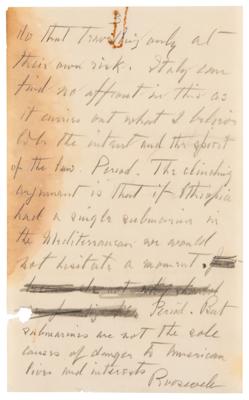 do that travelling only at
their own risk. Italy can
find no affront in this as
it carries out what I believe
to be the intent and the spirit
of the law. Period. The clinching
argument is that if Ethiopia
had a single submarine in
the Mediterranean we would
not hesitate a moment.
Period. But
submarines are not the sole
causes of danger to American
lives and interests
Roosevelt